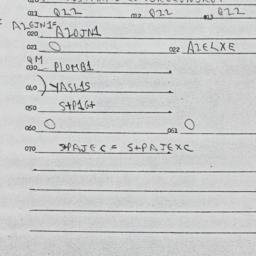 011 022 012 022 013 022
A2EJN1=
020 A20JN1
021 0 022 A2ELXE
QM
030 PLOMB1
040 ) YASL1S
050 S+P1G+
060 0 061 0
070 SPAJEC = S+PAJEXC